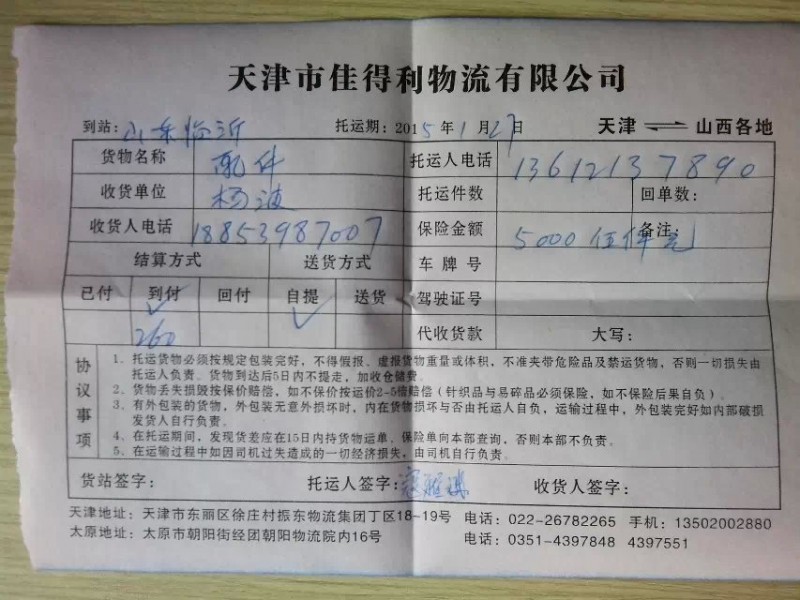 天津市佳得利物流有限公司
到站：山东临沂 托运期：2015年1月27日 天津⇌山西各地
货物名称 配件 托运人电话 13612137890
收货单位 杨波 托运件数 回单数：
收货人电话 18853987007 保险金额 5000 伍仟元 备注：
结算方式 送货方式 车牌号
已付 到付 回付 自提 送货 驾驶证号
260 代收货款 大写：
协议事项
1．托运货物必须按规定包装完好，不得假报、虚报货物重量或体积，不准夹带危险品及禁运货物，否则一切损失由
托运人负责。货物到达后5日内不提走，加收仓储费。
2．货物丢失损毁按保价赔偿，如不保价按运价2-5倍赔偿（针织品与易碎品必须保险，如不保险后果自负）。
3．有外包装的货物，外包装无意外损坏时，内在货物损坏与否由托运人自负，运输过程中，外包装完好如内部破损
发货人自行负责。
4．在托运期间，发现货差应在15日内持货物运单、保险单向本部查询，否则本部不负责。
5．在运输过程中如因司机过失造成的一切经济损失，由司机自行负责。
货站签字： 托运人签字： 收货人签字：
天津地址：天津市东丽区徐庄村振东物流集团丁区18-19号 电话：022-26782265 手机：13502002880
太原地址：太原市朝阳街经团朝阳物流院内16号 电话：0351-4397848 4397551